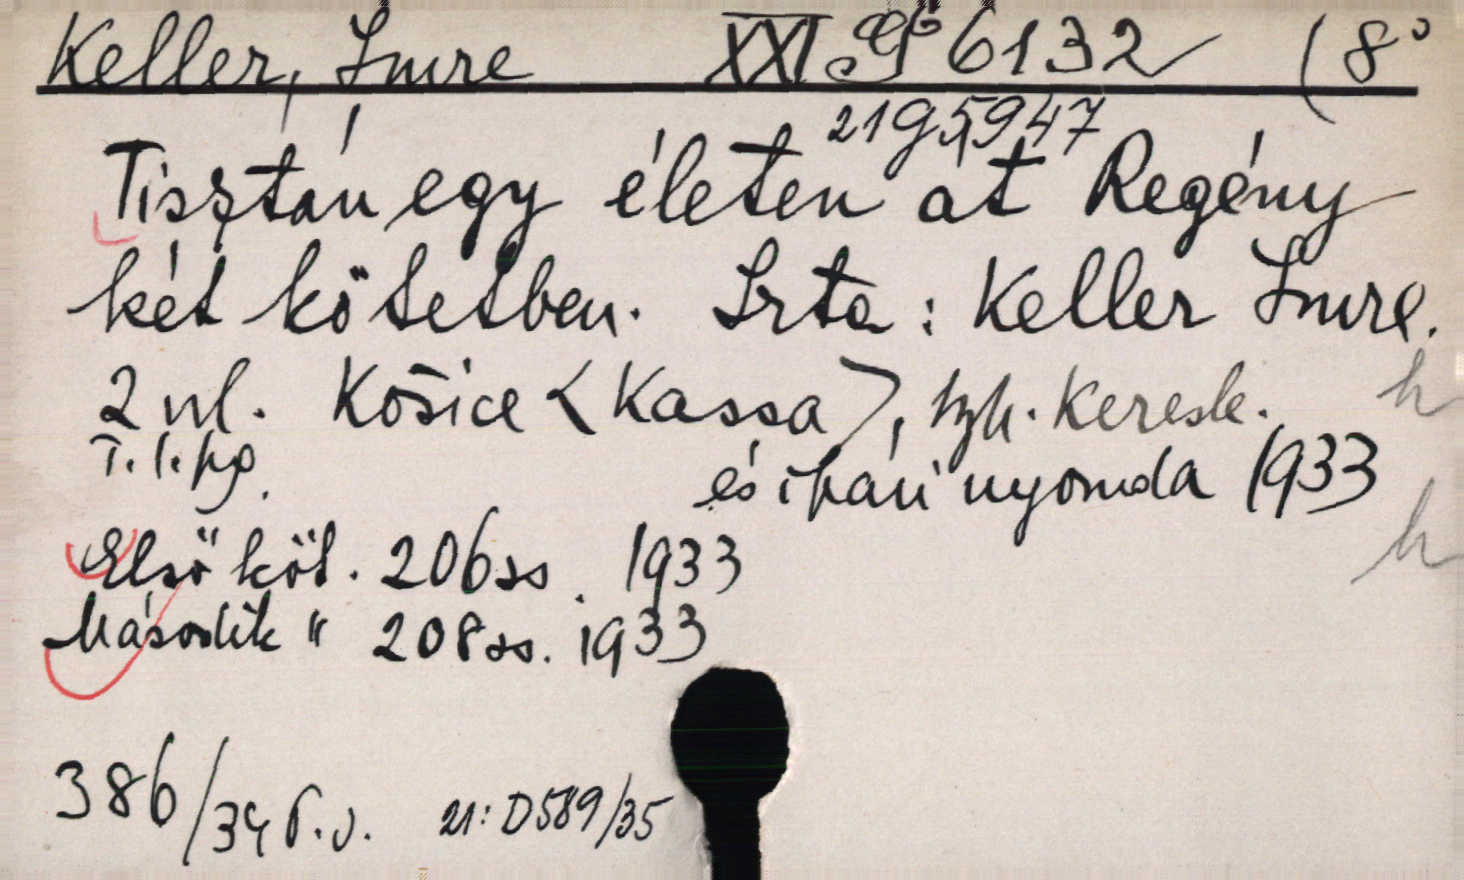 Keller, Imre XXI 6132 (8°
2195947
Tisztán egy életen át Regény
két kötetben. Irta: Keller Imre.
2 vl. Košice <Kassa>, kzp. keresk. h
T. l. pg. és ipari nyomda 1933
Első köt. 206 ss. 1933 h
Második " 208 ss. 1933
386/34 21: D 589/35